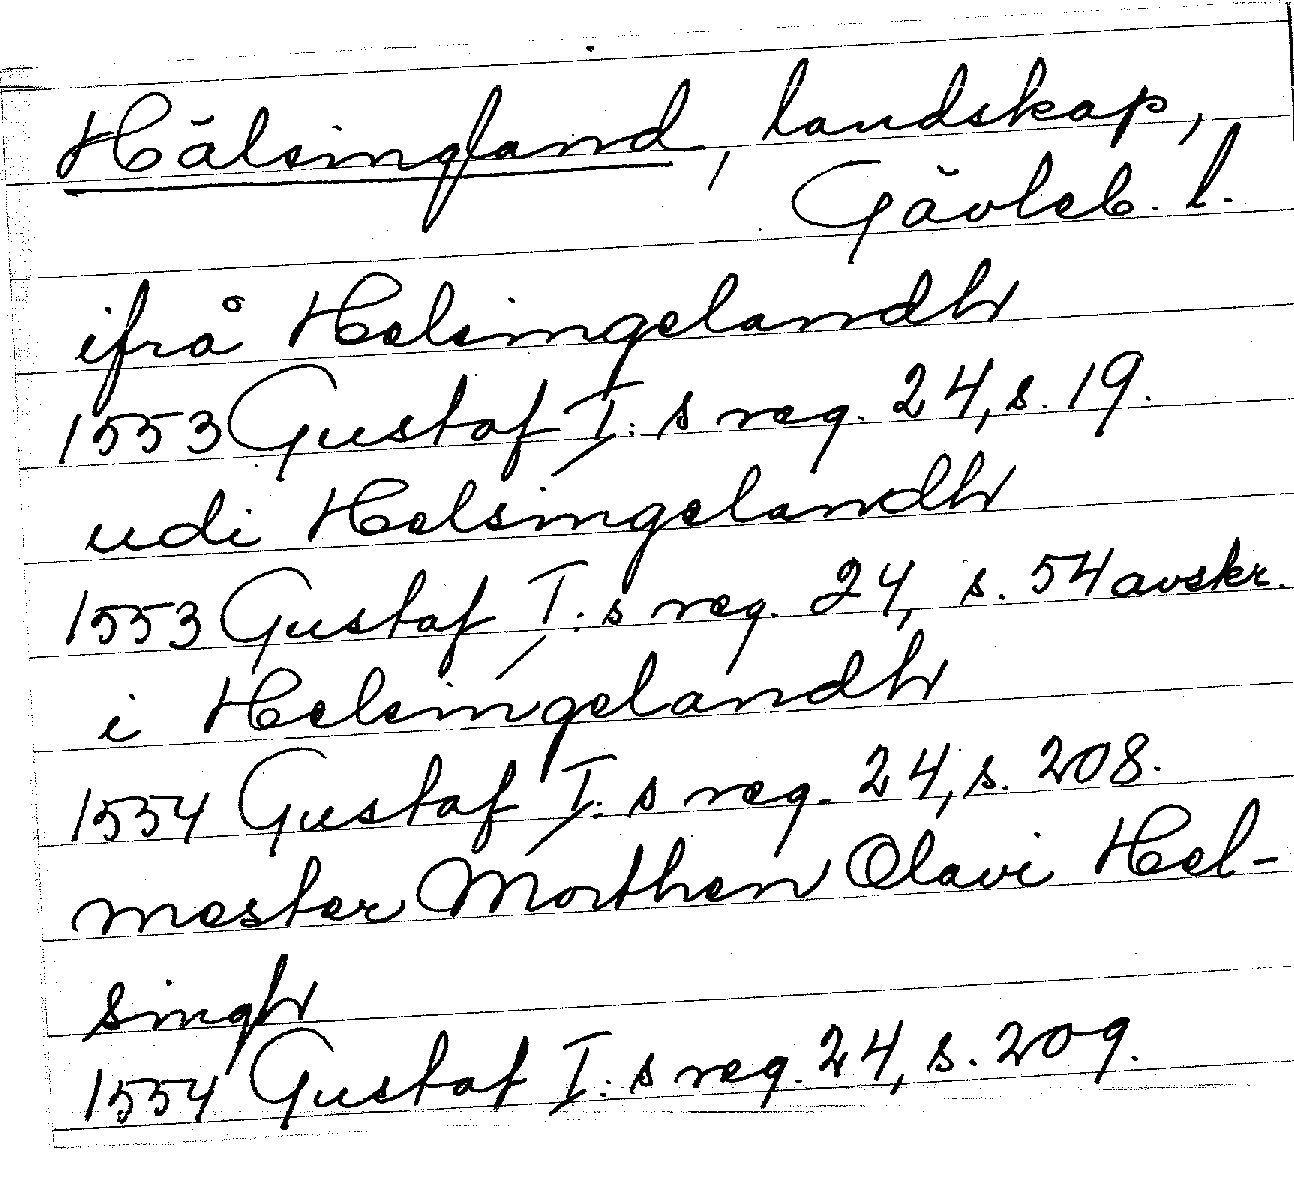 Hälsingland, landskap,
Gävleb. l.
ifrå Helsingelandh
1553 Gustaf I:s reg. 24, s. 19.
udi Helsingelandh
1553 Gustaf I:s reg. 24, s. 54 avskr.
i Helsingelandh
1554 Gustaf I:s reg. 24, s. 208.
mester Morthen Olavi Hel-
singh
1554 Gustaf I:s reg. 24, s. 209.